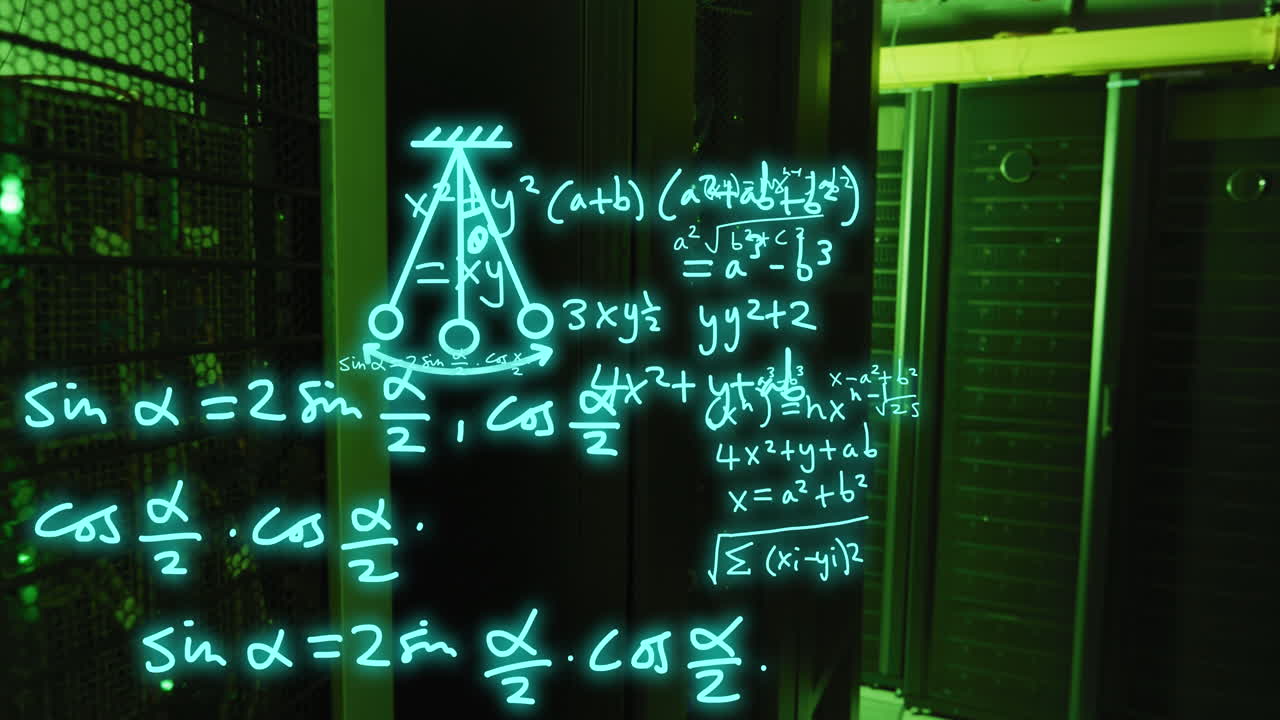 x² + y² (a+b) (a²+ab+b²)
a²√b²+c²
= xy = a³-b³
3xy½ yy²+2
sin α = 2 sin α/2 · cos α/2
4x²+y+ab x-a²+b²
sin α = 2 sin α/2 , cos α/2 (xⁿ) = nxⁿ⁻¹ √25
4x²+y+ab
x = a²+b²
cos α/2 · cos α/2 ·
√Σ (xi-yi)²
sin α = 2 sin α/2 · cos α/2 .